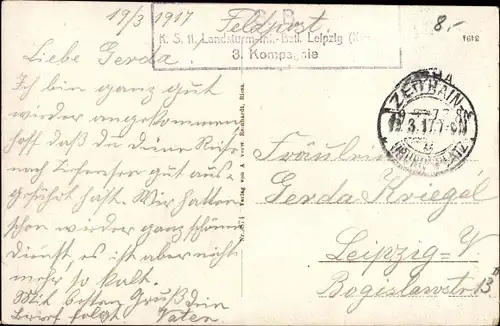 19/3 1917
Feldpost
8.-
K. S. II. Landsturm-Inf.-Batl. Leipzig
3. Kompagnie
1612
Liebe Gerda.
Ich bin ganz gut
wieder angekommen
hoff daß du deine Reise
nach gut aus-
geführt hast. Wir hatten
schon wieder ganz schönen
dienst es ist aber nicht
mehr so kalt.
Mit besten Gruß Dein
Brief folgt Vater
Verlag von A. verw. Reinhardt, Riesa.
ZEITHAIN
19.3.17.7-8N
Fräulein
Gerda Kriegel
Leipzig-V.
Bogislawstr 13 II